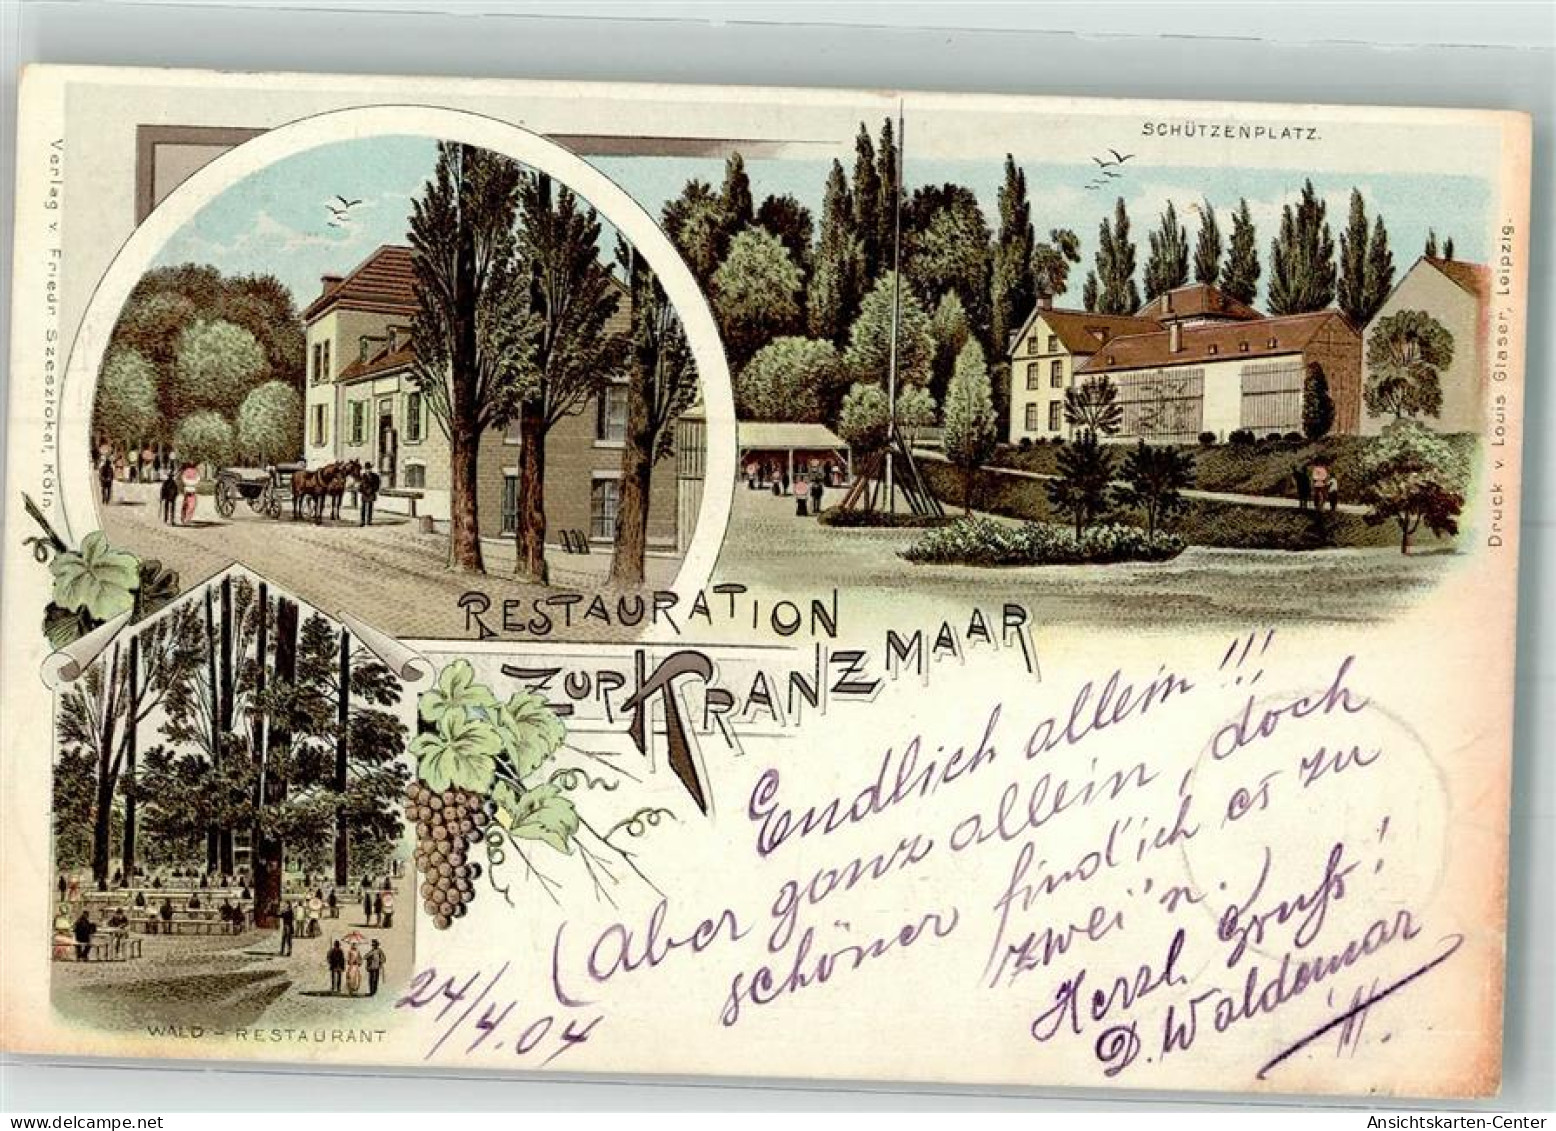 SCHÜTZENPLATZ.
Verlag v. Friedr. Szeszlokat, Köln.
Druck v. Louis Glaser, Leipzig.
RESTAURATION
ZUR KRANZMAAR
WALD - RESTAURANT
Endlich allein!!!
(Aber ganz allein, doch
schöner find' ich es zu
zwei'n.)
Herzl. Gruß!
D. Waldemar
24/4.04
Ansichtskarten-Center